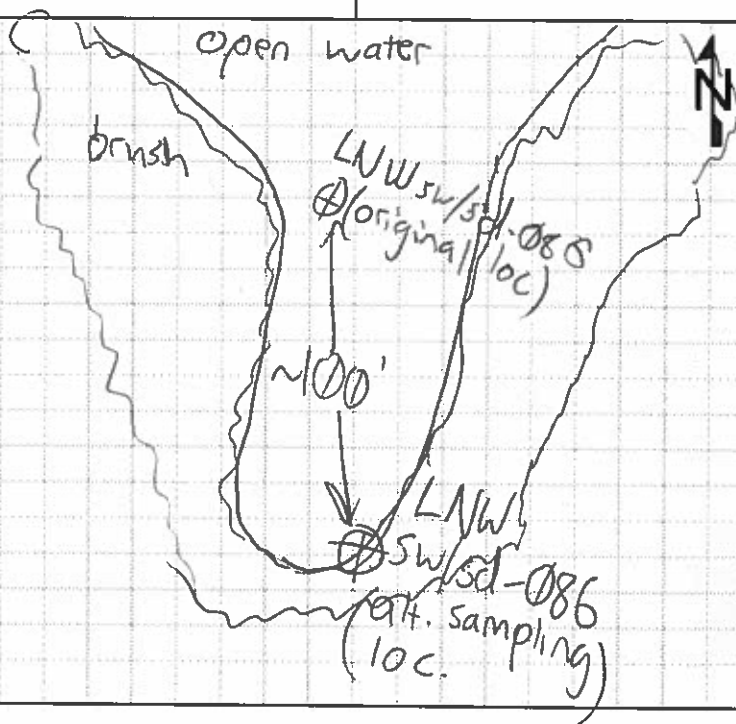 open water
N
brush
LNW sw/sd-Ø86
(original loc)
~1ØØ'
LNW
sw/sd-Ø86
(alt. sampling
loc.)